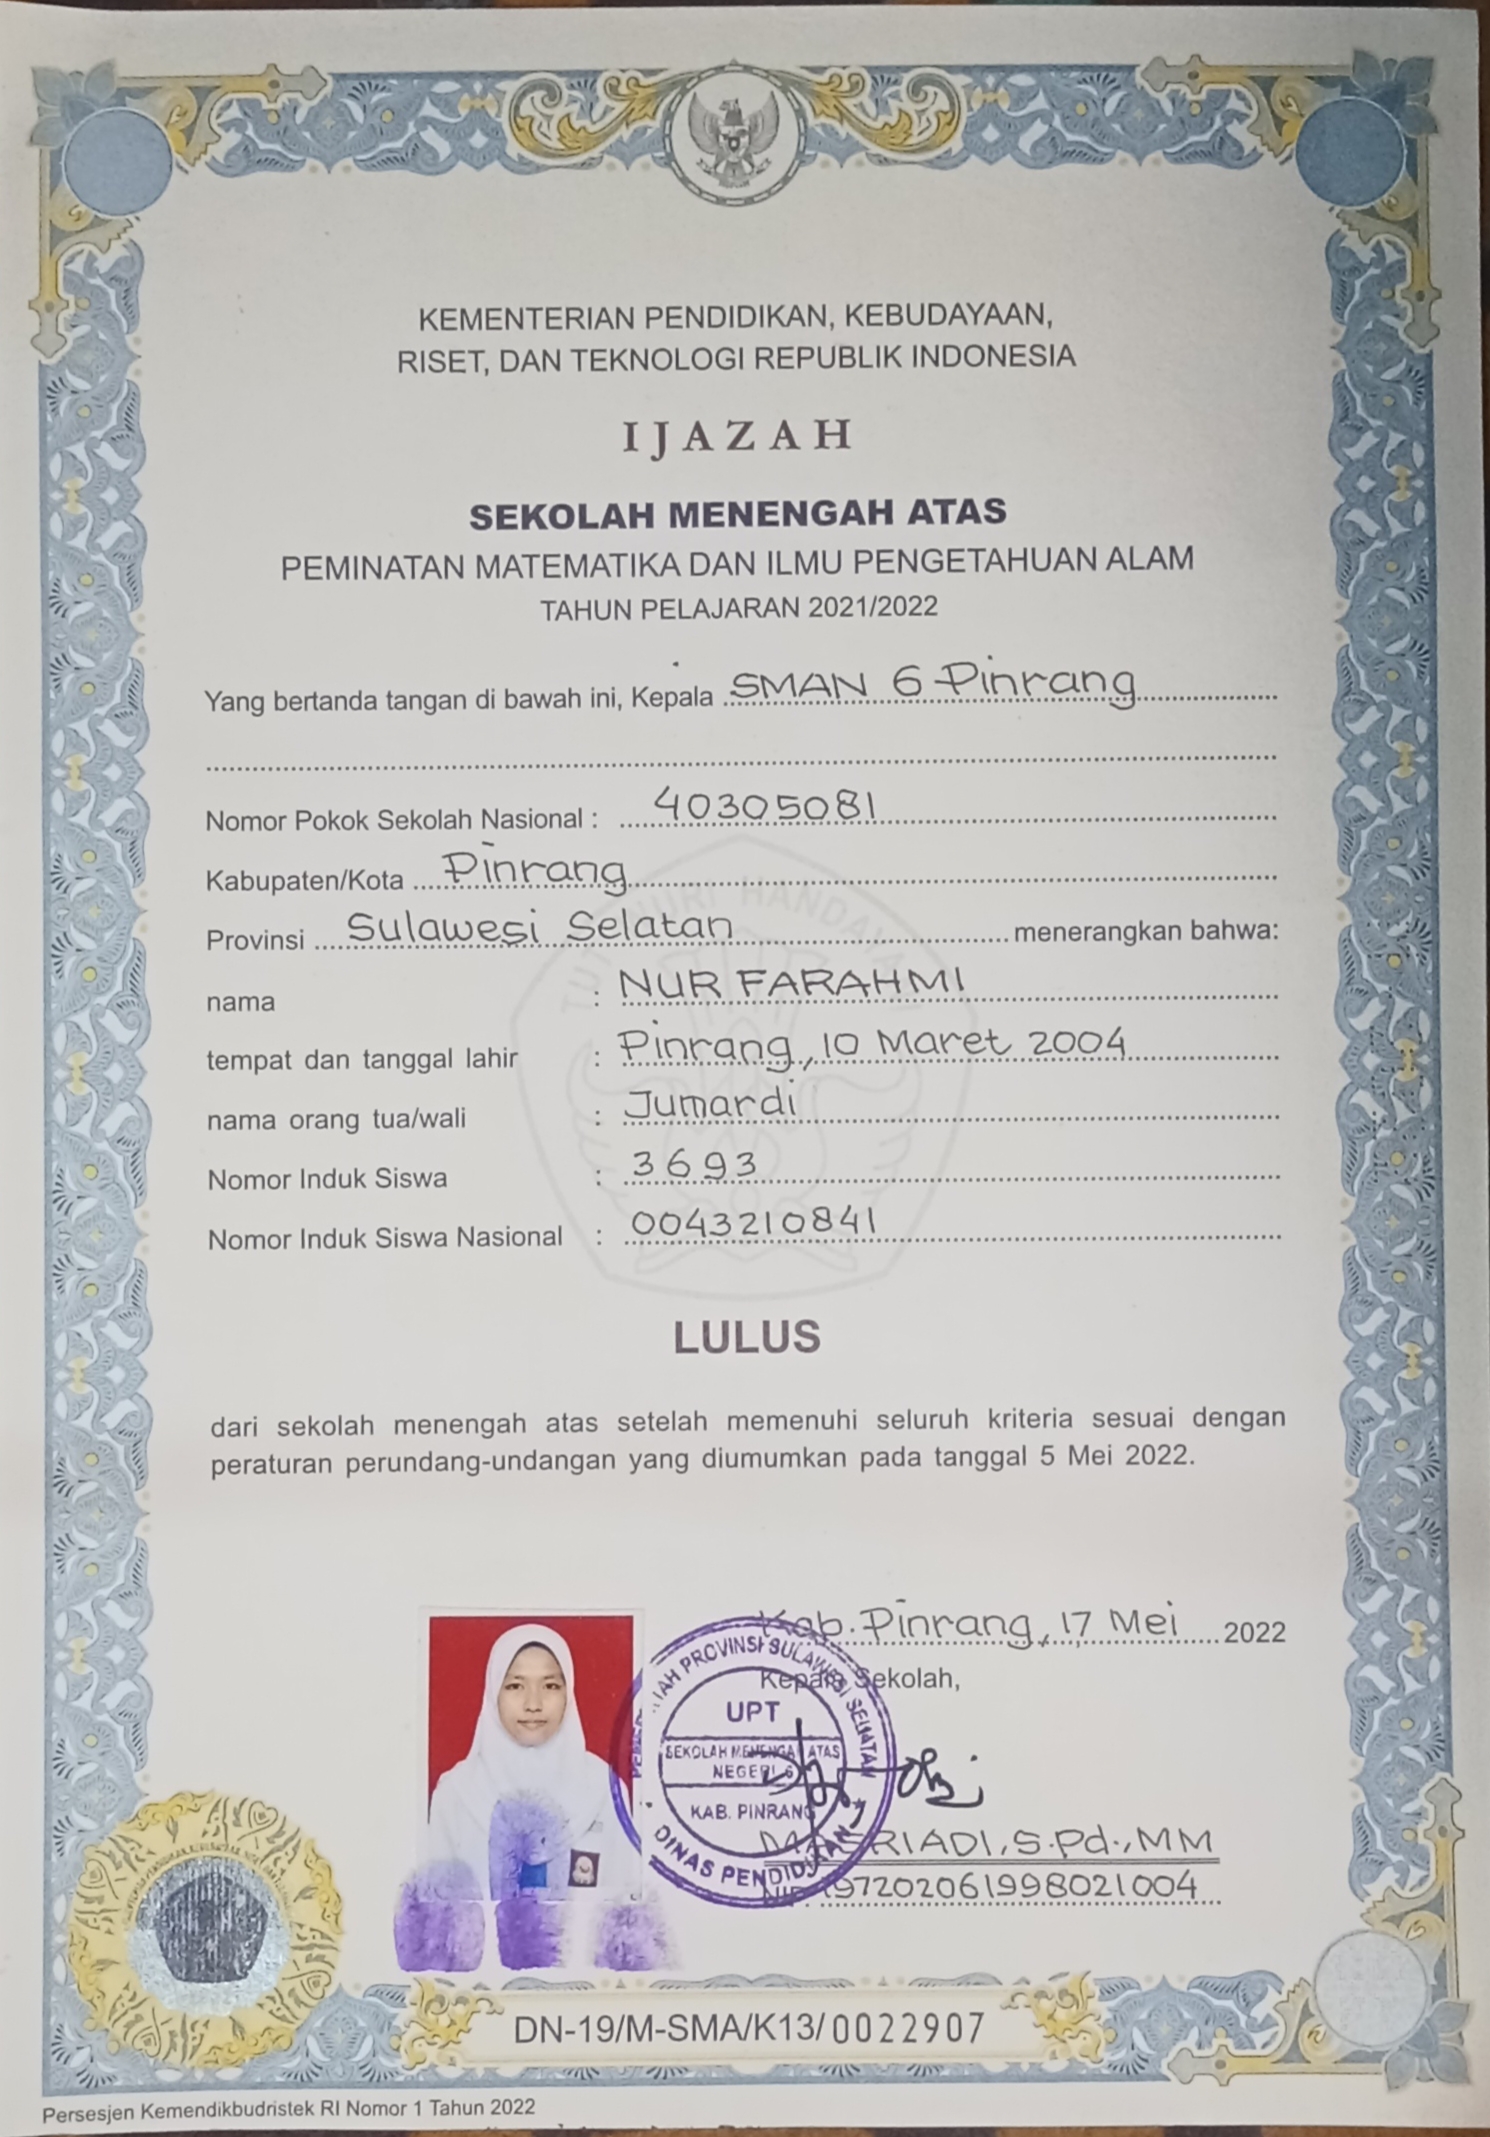 KEMENTERIAN PENDIDIKAN, KEBUDAYAAN,
RISET, DAN TEKNOLOGI REPUBLIK INDONESIA
IJAZAH
SEKOLAH MENENGAH ATAS
PEMINATAN MATEMATIKA DAN ILMU PENGETAHUAN ALAM
TAHUN PELAJARAN 2021/2022
Yang bertanda tangan di bawah ini, Kepala SMAN 6 Pinrang
Nomor Pokok Sekolah Nasional : 40305081
Kabupaten/Kota Pinrang
Provinsi Sulawesi Selatan menerangkan bahwa:
nama : NUR FARAHMI
tempat dan tanggal lahir : Pinrang, 10 Maret 2004
nama orang tua/wali : Jumardi
Nomor Induk Siswa : 3693
Nomor Induk Siswa Nasional : 0043210841
LULUS
dari sekolah menengah atas setelah memenuhi seluruh kriteria sesuai dengan
peraturan perundang-undangan yang diumumkan pada tanggal 5 Mei 2022.
Kab. Pinrang, 17 Mei 2022
Kepala Sekolah,
PROVINSI SULAWESI SELATAN
UPT
SEKOLAH MENENGAH ATAS
NEGERI 6
KAB. PINRANG
DINAS PENDIDIKAN
RIADI, S.Pd., MM
NIP. 197202061998021004
DN-19/M-SMA/K13/0022907
Persesjen Kemendikbudristek RI Nomor 1 Tahun 2022